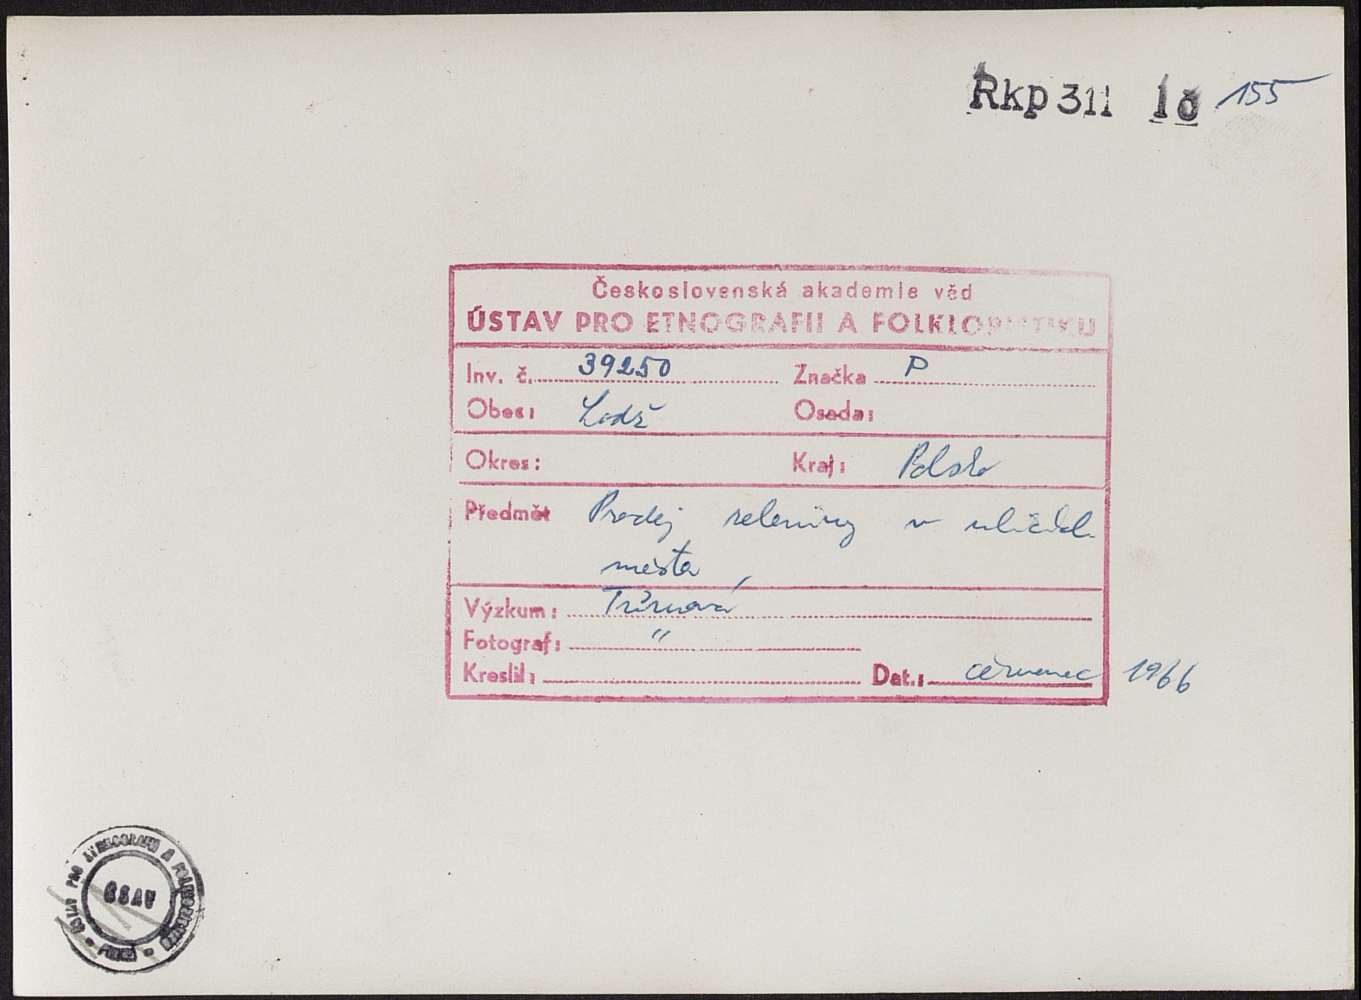 Rkp 311 10 155
Československá akademie věd
ÚSTAV PRO ETNOGRAFII A FOLKLORISTIKU
Inv. č. 39250 Značka P
Obec: Lodž Osada:
Okres: Kraj: Polsko
Předmět Prodej zeleniny v uličkách
města,
Výzkum: Tůmová
Fotograf: "
Kreslil: Dat.: červenec 1966
ÚSTAV PRO ETNOGRAFII A FOLKLORISTIKU
ČSAV
PRAHA